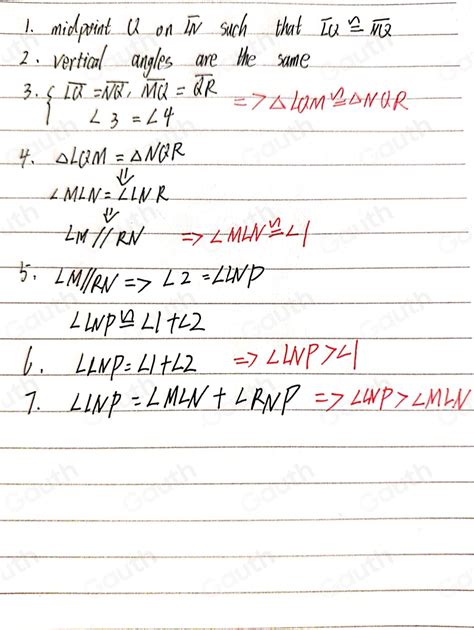 1. midpoint Q on \overline{LN} such that \overline{LQ} ≅ \overline{NQ}
2. vertical angles are the same
3. { \overline{LQ} = \overline{NQ}, \overline{MQ} = \overline{QR}
∠3 = ∠4 => △LQM ≅ △NQR
4. △LQM = △NQR
⇓
∠MLN = ∠LNR
⇓
LM // RN => ∠MLN ≅ ∠1
5. LM//RN => ∠2 = ∠LNP
∠LNP ≅ ∠1+∠2
6. ∠LNP = ∠1+∠2 => ∠LNP > ∠1
7. ∠LNP = ∠MLN + ∠RNP => ∠LNP > ∠MLN